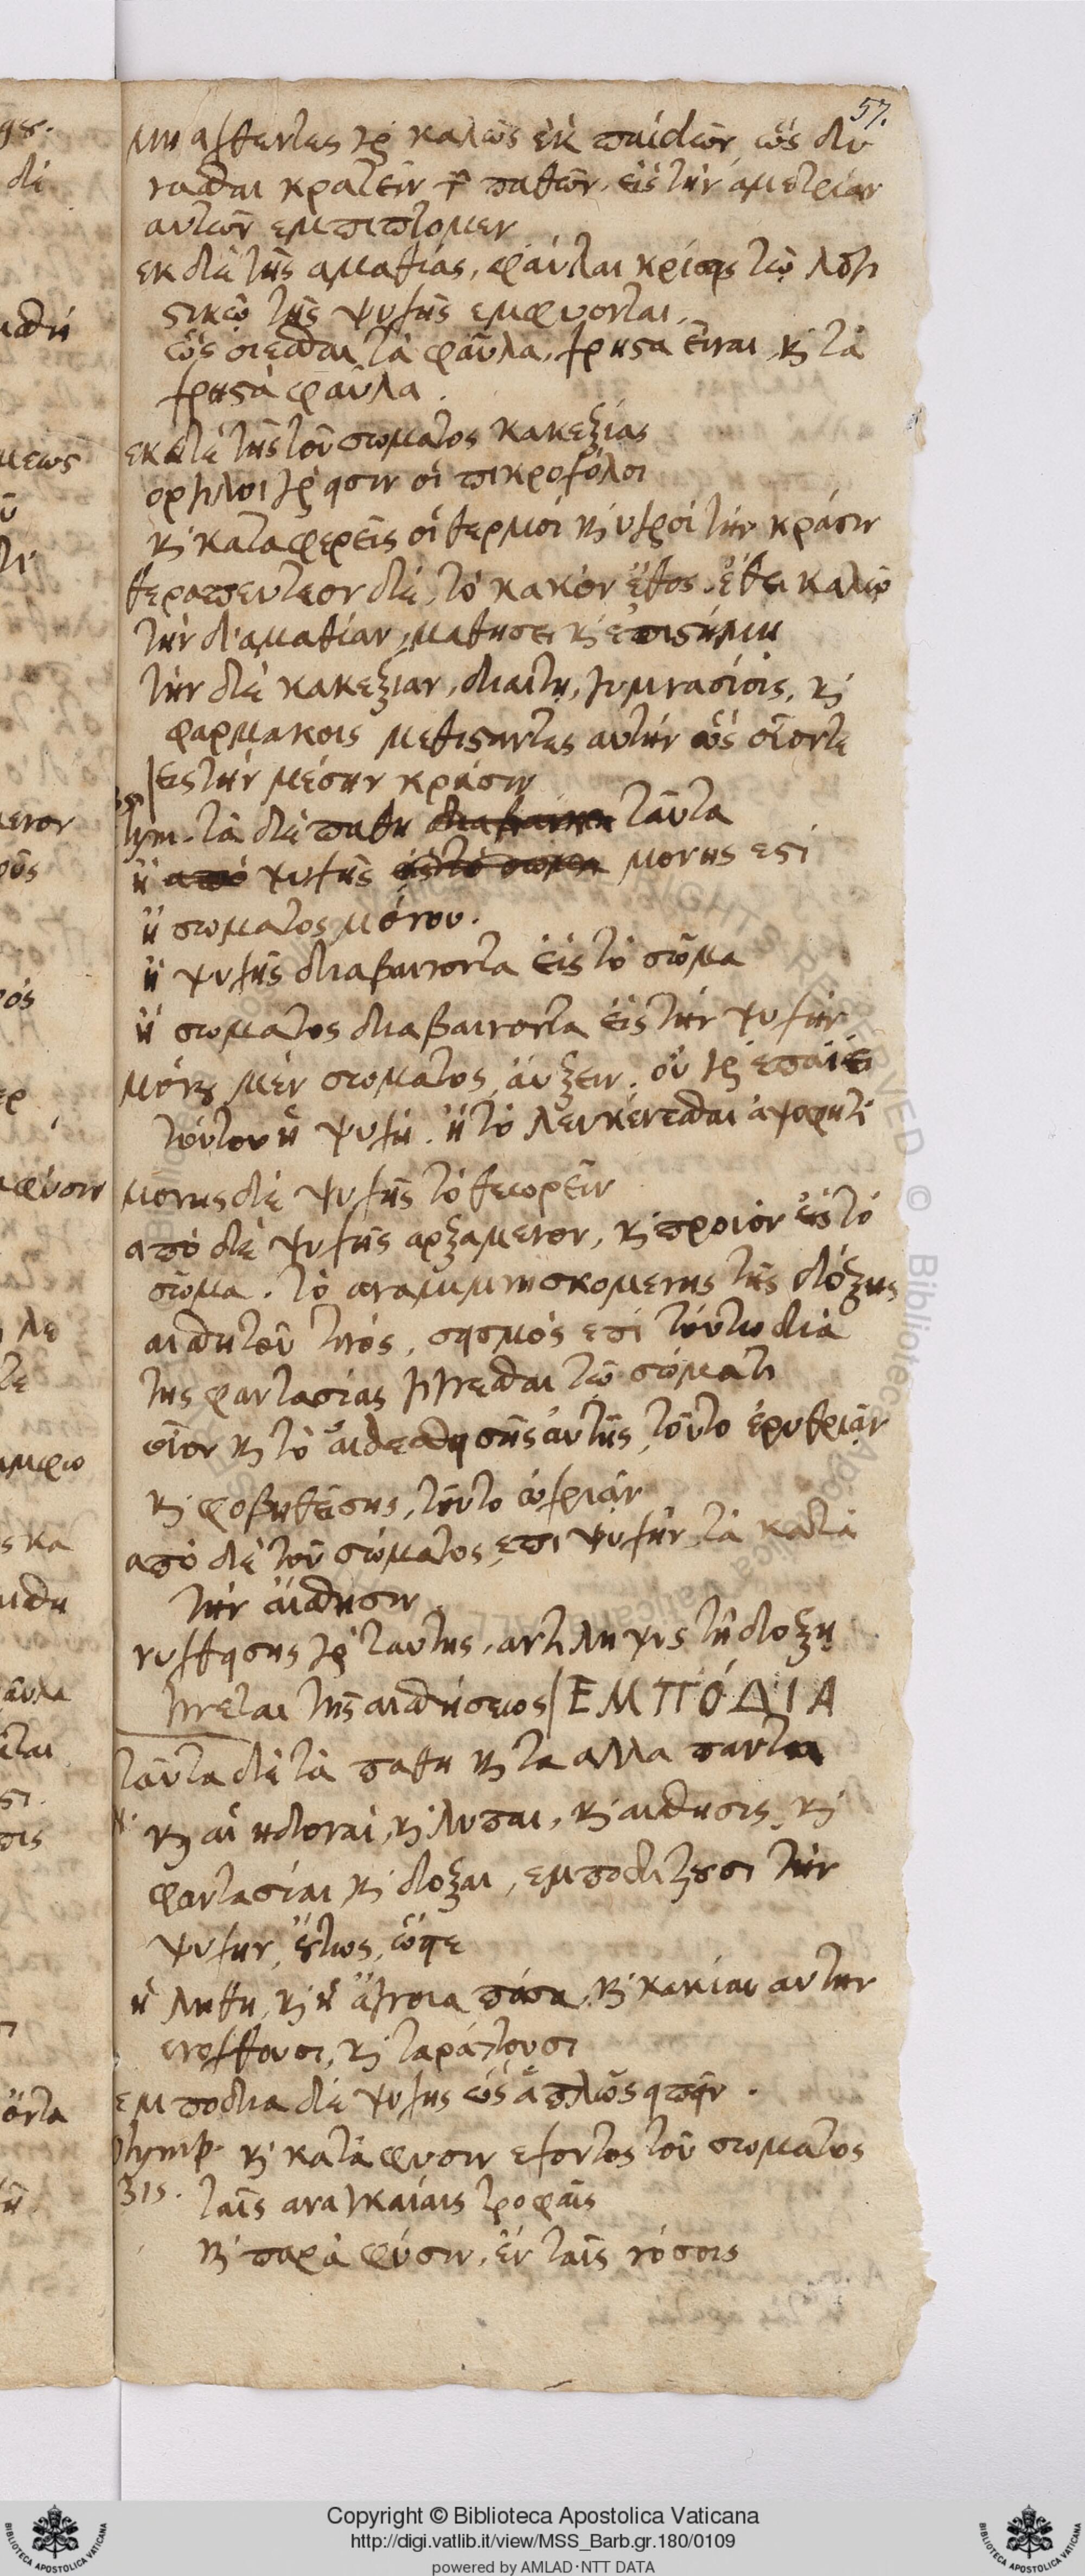 57.
μη αχθεντες γὰρ καλῶς ἐκ παίδων ὡς δύ
νασθαι κρατεῖν τῶν παθῶν, εἰς τὴν ἀμετρίαν
αυτῶν εμπιπτομεν
εκ δὲ τῆς αμαθίας, φαύλαι κρίσεις τῷ λογι
στικῷ τῆς ψυχῆς εμφυονται,
ὡς οιεσθαι τὰ φαῦλα, χρηστα εἶναι, καὶ τὰ
χρηστὰ φαῦλα.
εκ δὲ τῆς τοῦ σωματος καχεξίας
οργιλοι γάρ εισιν οἱ πικροχόλοι
καὶ καταφερεῖς οἱ θερμοί καὶ υγροί τὴν κράσιν
θεραπευτεον δὲ, τὸ κακὸν ἔθος, ἔθει καλῷ
τὴν δ' αμαθίαν, μαθησει καὶ ἐπιστήμῃ
τὴν δὲ καχεξιαν, διαιτῃ, γυμνασίοις, καὶ
φαρμακοις μεθισαντες αυτὴν ὡς οἷόντε
εις τὴν μέσην κράσιν
τὰ δὲ παθη ταῦτα
ἢ ψυχῆς μονης εστί
ἢ σωματος μόνου.
ἢ ψυχῆς διαβαινοντα εἰς τὸ σῶμα
ἢ σωματος διαβαινοντα εἰς τὴν ψυχὴν
μόνου μὲν σωματος, άυξειν. οὐ γὰρ επαίει
τούτου ἡ ψυχή.
μονης δὲ ψυχῆς τὸ θεωρεῖν
απὸ δὲ ψυχῆς αρξαμενον, καὶ προιὸν εἰς τὸ
σῶμα. τὸ αναμιμνησκομενης τῆς δόξης
αισθητοῦ τινός, σεισμὸς επὶ τούτω διὰ
της φαντασίας γίνεσθαι τῷ σώματι
οἷον καὶ τὸ αιδεσθείσης αυτῆς, τοῦτο ἐρυθριᾷν
καὶ φοβηθείσης, τοῦτο ὠχριᾷν
απὸ δὲ τοῦ σώματος, επι ψυχὴν, τὰ κατὰ
τὴν αίσθησιν.
νυχθεισης γὰρ ταυτης, αντιληψις τῇ δοξῃ
γίνεται τῆς αισθήσεως ΕΜΠΌΔΙΑ
ταῦτα δὲ τὰ παθη καὶ τα αλλα παντα
καὶ αἱ ηδοναὶ, καὶ λυπαι, καὶ αισθησις, καὶ
φαντασίαι καὶ δοξαι, εμποδιζουσι τὴν
ψυχην, οὕτως, ὥστε
ἡ ληθη, καὶ ἡ ἄγνοια πᾶσα, καὶ κακίαι αυτην
ενοχθουσι, καὶ ταράττουσι
εμποδια δὲ ψυχης ὡς ἁπλῶς ειπεῖν.
Olymp. καὶ κατὰ φυσιν εχοντος τοῦ σωματος
315. ταῖς αναγκαίαις τροφαῖς
καὶ παρὰ φύσιν, ἐν ταῖς νόσοις
Copyright © Biblioteca Apostolica Vaticana
http://digi.vatlib.it/view/MSS_Barb.gr.180/0109
powered by AMLAD·NTT DATA